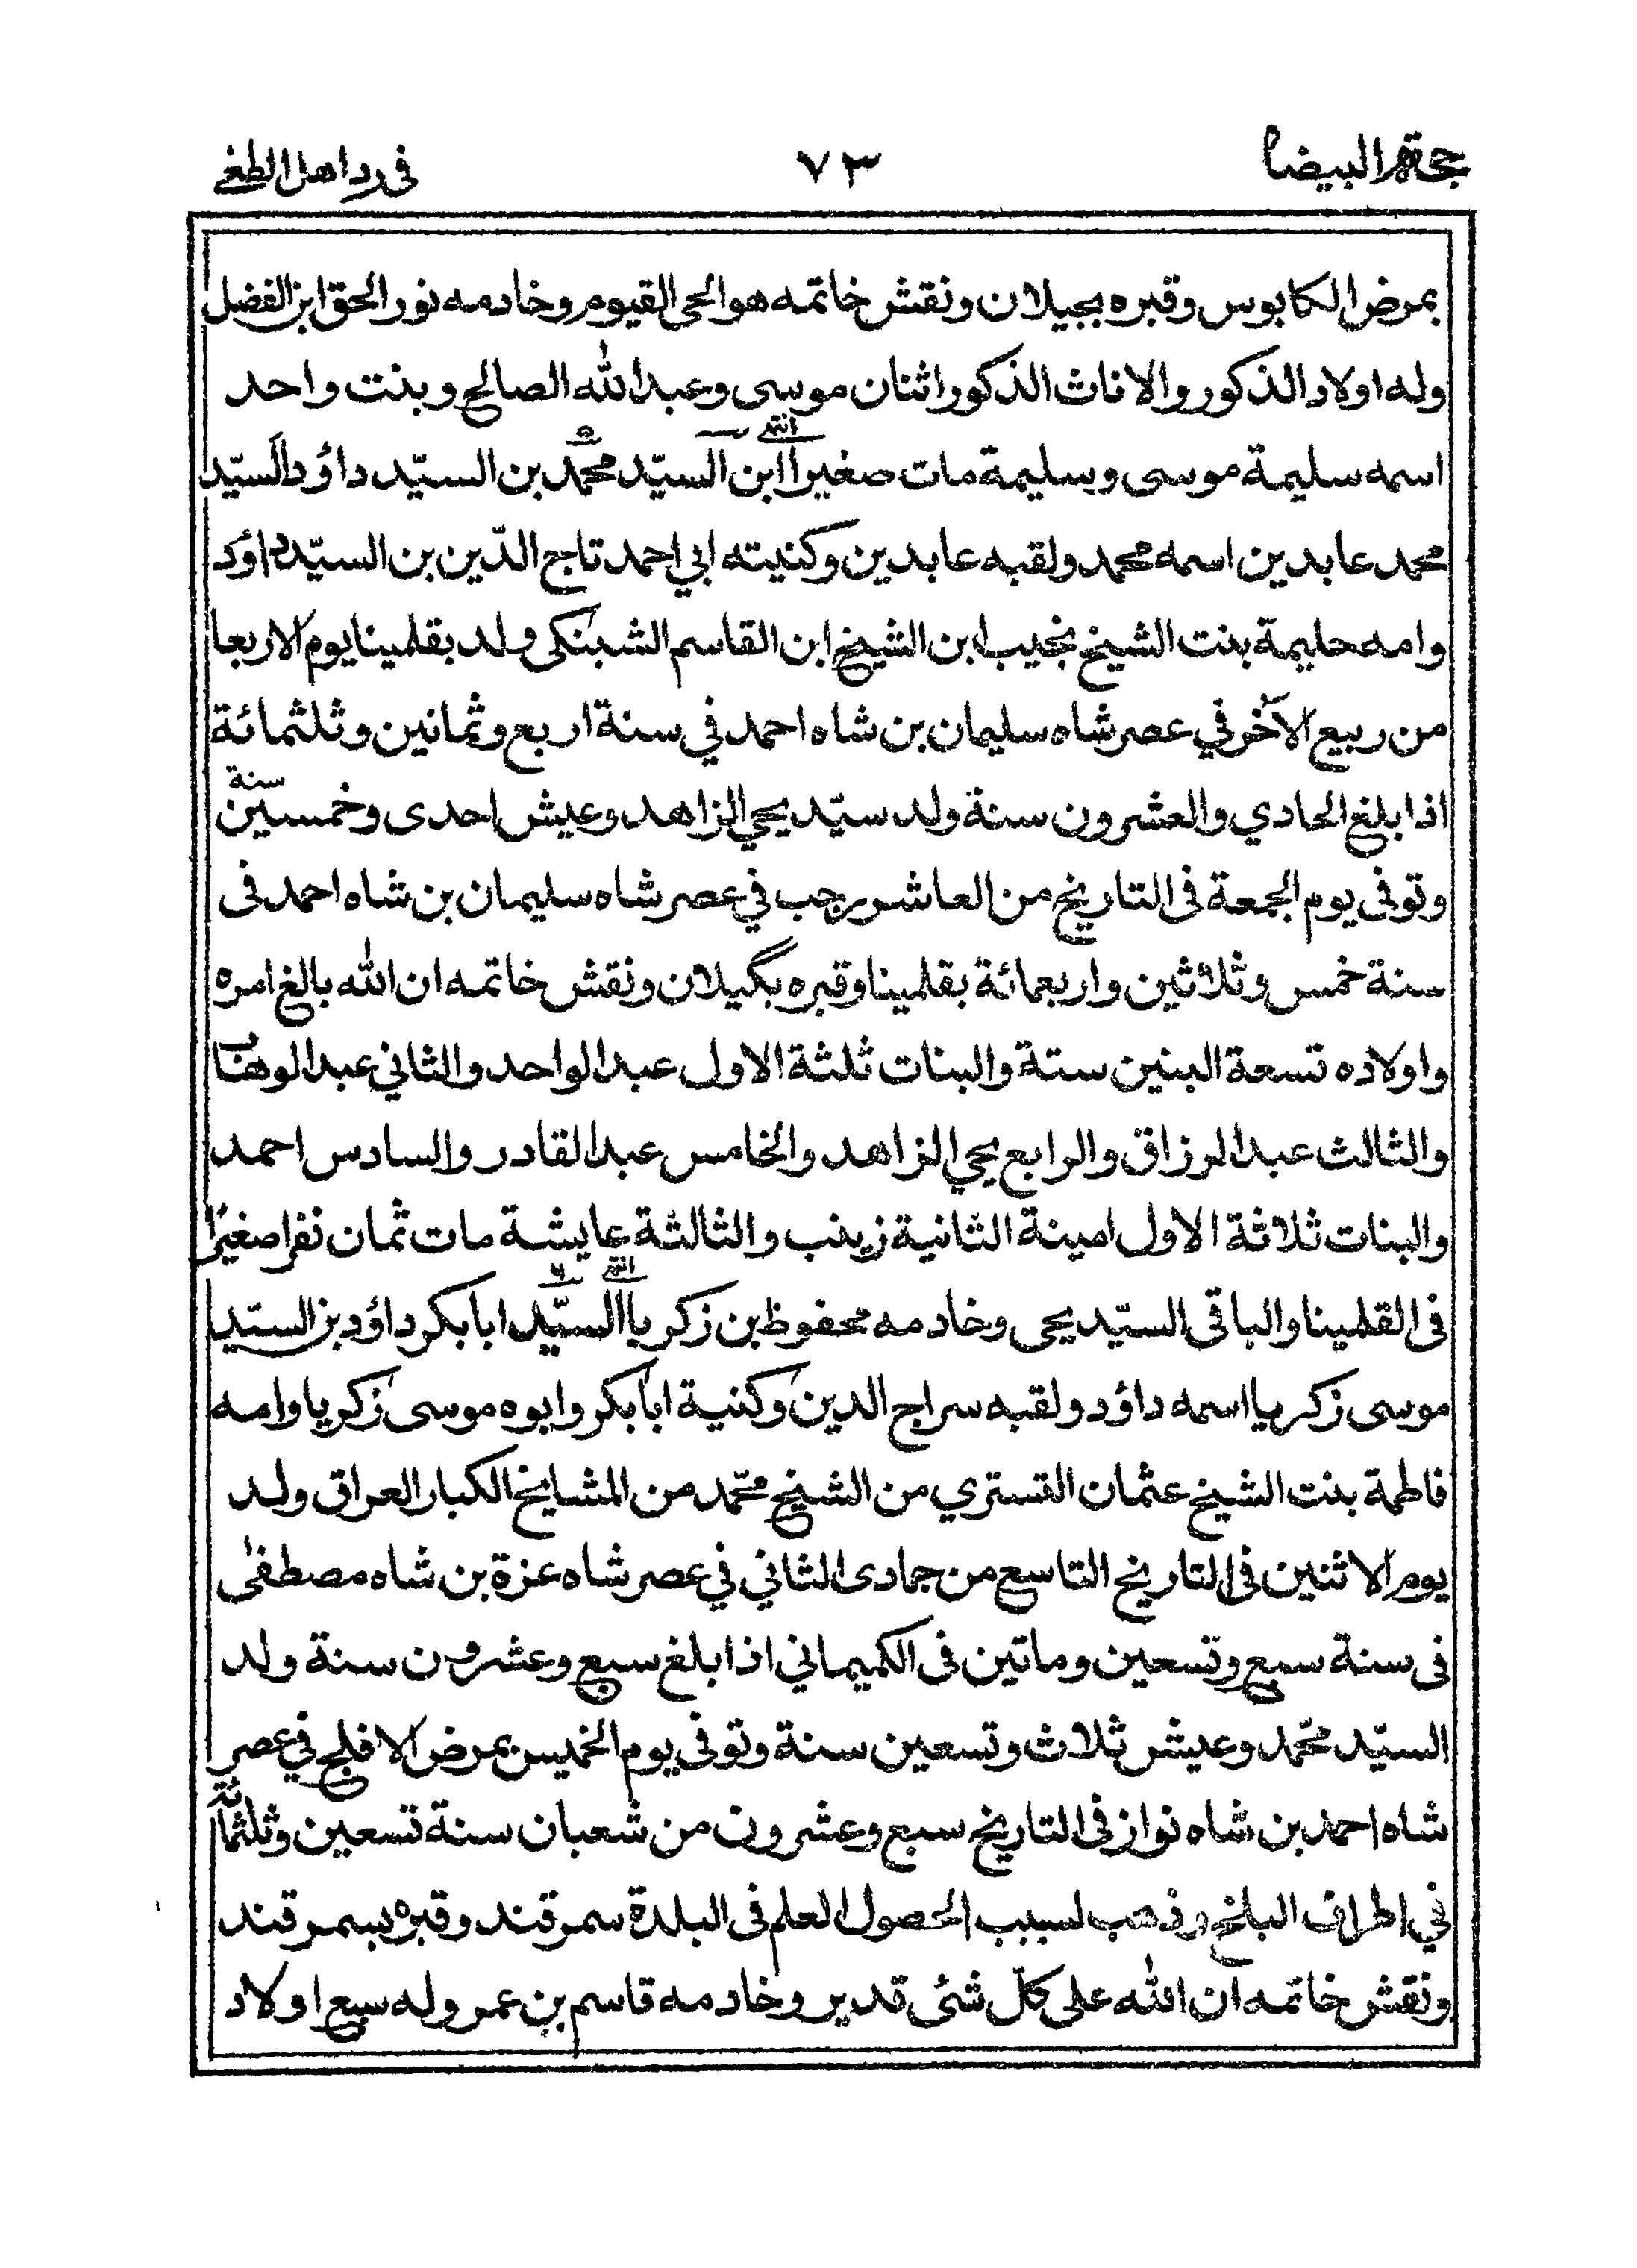 حجة البيضاء ٧٣ فى رد اهل الطغى
بمرض الكابوس وقبره بجيلان ونقش خاتمه هو الحى القيوم وخادمه نور الحق ابن الفضل
وله اولاد الذكور والاناث الذكور اثنان موسى وعبد الله الصالح وبنت واحد
اسمه سليمة موسى وسليمة مات صغيرا انتهى ابن السيّد محمّد بن السيّد داؤد السيّد
محمد عابدين اسمه محمد ولقبه عابدين وكنيته ابي احمد تاج الدّين بن السيّد داؤد
وامه حليمة بنت الشيخ نجيب ابن الشيخ ابن القاسم الشبنكى ولد بقلمينا يوم الاربعا
من ربيع الآخر في عصر شاه سليمان بن شاه احمد في سنة اربع وثمانين وثلثمائة
اذا بلغ الحادي والعشرون سنة ولد سيّد يحيى الزاهد وعيش احدى وخمسين سنة
وتوفى يوم الجمعة فى التاريخ من العاشر رجب في عصر شاه سليمان بن شاه احمد فى
سنة خمس وثلاثين واربعمائة بقلمينا وقبره بگيلان ونقش خاتمه ان الله بالغ امره
واولاده تسعة البنين ستة والبنات ثلثة الاول عبد الواحد والثاني عبد الوهاب
والثالث عبد الرزاق والرابع يحيى الزاهد والخامس عبد القادر والسادس احمد
والبنات ثلاثة الاول امينة الثانية زينب والثالثة عايشة مات ثمان نفرا صغيرا
فى القلمينا والباقى السيّد يحيى وخادمه محفوظ بن زكريا انتهى السيّد ابابكر داؤد بن السيّد
موسى زكريا اسمه داؤد ولقبه سراج الدين وكنية ابابكر وابوه موسى زكريا وامه
فاطمة بنت الشيخ عثمان التستري من الشيخ محمّد من المشايخ الكبار العراق ولد
يوم الاثنين فى التاريخ التاسع من جمادى الثاني في عصر شاه عزة بن شاه مصطفى
فى سنة سبع وتسعين وماتين فى الكميماني اذا بلغ سبع وعشرون سنة ولد
السيّد محمّد وعيش ثلاث وتسعين سنة وتوفى يوم الخميس بمرض الافلج في عصر
شاه احمد بن شاه نواز فى التاريخ سبع وعشرون من شعبان سنة تسعين وثلثمائة
في اطراف البلخ وذهب لسبب الحصول العلم فى البلدة سمرقند وقبره بسمرقند
ونقش خاتمه ان الله على كلّ شئى قدير وخادمه قاسم بن عمر وله سبع اولاد